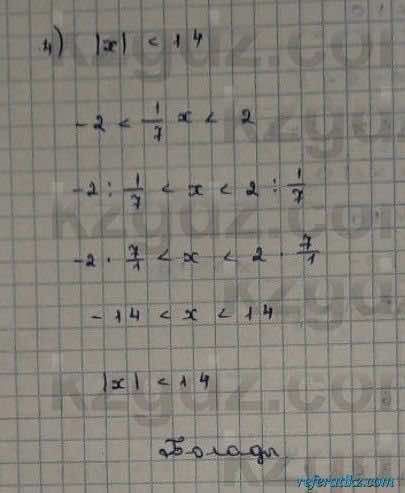 4) |x| < 14
-2 < 1/7 x < 2
-2 : 1/7 < x < 2 : 1/7
-2 · 7/1 < x < 2 · 7/1
-14 < x < 14
|x| < 14
Болады
kzgdz.com
referatikz.com